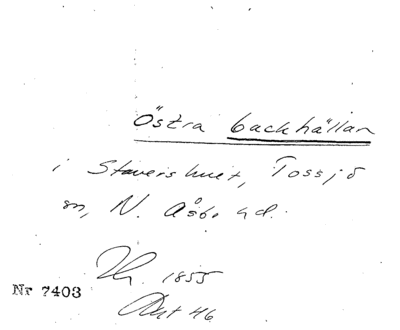 Östra backhällan
i Stavershult, Tossjö
sn, N. Åsbo hd.
1855
Nr 7403
Akt 46